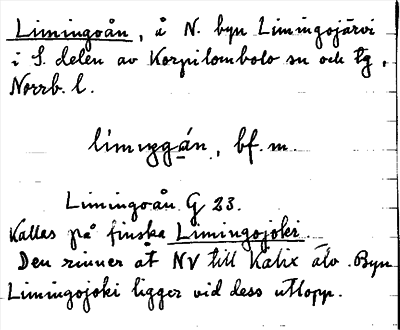 Limingoån, å N. byn Limingojärvi
i S. delen av Korpilombolo sn och tg,
Norrb. l.
limiŋgån, bf. m.
Limingoån G 23.
Kallas på finska Limingojoki
Den rinner åt NV till Kalix älv. Byn
Limingojoki ligger vid dess utlopp.